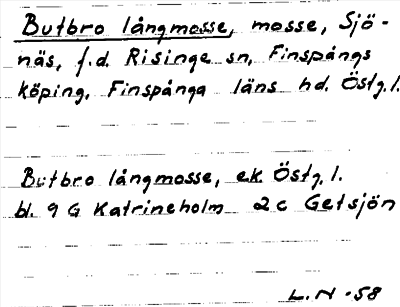 Butbro långmosse, mosse, Sjö-
näs, f.d. Risinge sn, Finspångs
köping, Finspånga läns hd. Östg.l.
Butbro långmosse, ek Östg.l.
bl. 9 G Katrineholm 2c Getsjön
L.N -58